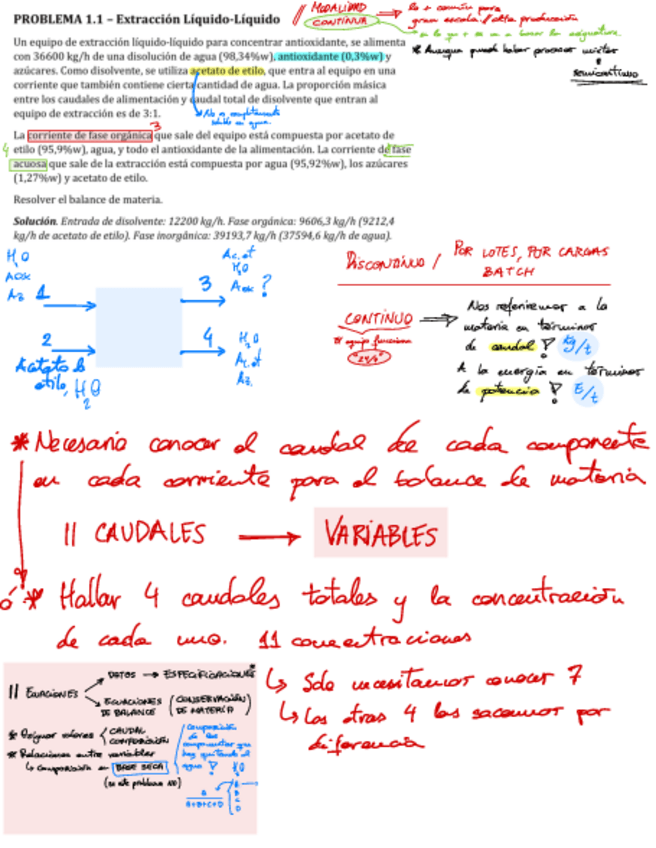 PROBLEMA 1.1 – Extracción Líquido-Líquido
Un equipo de extracción líquido-líquido para concentrar antioxidante, se alimenta
con 36600 kg/h de una disolución de agua (98,34%w), antioxidante (0,3%w) y
azúcares. Como disolvente, se utiliza acetato de etilo, que entra al equipo en una
corriente que también contiene cierta cantidad de agua. La proporción másica
entre los caudales de alimentación y caudal total de disolvente que entran al
equipo de extracción es de 3:1.
La corriente de fase orgánica que sale del equipo está compuesta por acetato de
etilo (95,9%w), agua, y todo el antioxidante de la alimentación. La corriente de fase
acuosa que sale de la extracción está compuesta por agua (95,92%w), los azúcares
(1,27%w) y acetato de etilo.
Resolver el balance de materia.
Solución. Entrada de disolvente: 12200 kg/h. Fase orgánica: 9606,3 kg/h (9212,4
kg/h de acetato de etilo). Fase inorgánica: 39193,7 kg/h (37594,6 kg/h de agua).
// MODALIDAD
CONTÍNUA
lo + común para
gran escala / alta producción
* Aunque puede haber procesos mixtos
semicontinuo
3
4
H2O
Aox
Az
1
2
Acetato de
etilo, H2O
3
Ac. et
H2O
Aox ?
4
H2O
Ac. et
Az.
DISCONTÍNUO / POR LOTES, POR CARGAS
BATCH
CONTÍNUO
El equipo funciona
"24/7"
Nos referiremos a la
materia en términos
de caudal ! kg/t
A la energía en términos
de potencia ! E/t
* Necesario conocer el caudal de cada componente
en cada corriente para el balance de materia
11 CAUDALES → VARIABLES
ó * Hallar 4 caudales totales y la concentración
de cada uno. 11 concentraciones
↳ Solo necesitamos conocer 7
↳ Las otras 4 las sacamos por
diferencia
11 ECUACIONES
DATOS → ESPECIFICACIONES
ECUACIONES DE BALANCE (CONSERVACIÓN DE MATERIA)
* Asignar valores
CAUDAL
COMPOSICIÓN
* Relaciones entre variables
↳ Composición en BASE SECA
(en este problema NO)
Composición
de los
componentes que
hay quitando el
agua !
H2O
A
B
C
D
A
A+B+C+D